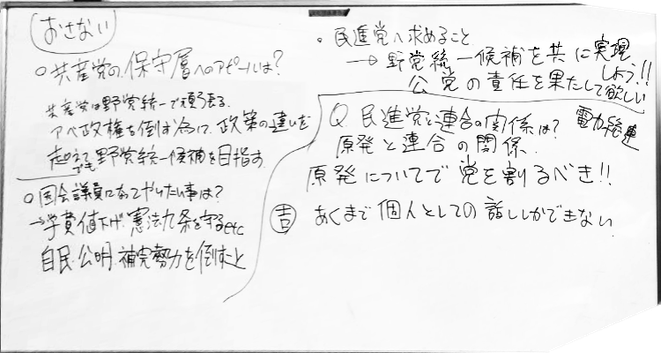 おさない
○共産党の保守層へのアピールは?
共産党は野党統一で頑張る
アベ政権を倒す為に、政策の違いを
起こえてでも野党統一候補を目指す
○国会議員になってやりたい事は?
→学費値下げ 憲法九条を守るetc
自民・公明・補完勢力を倒すこと
・民進党へ求めること
→野党統一候補を共に実現しよう!!
公党の責任を果たして欲しい
Q 民進党と連合の関係は? 電力総連
原発と連合の関係
原発についてで党を割るべき!!
吉 あくまで個人としての話ししかできない